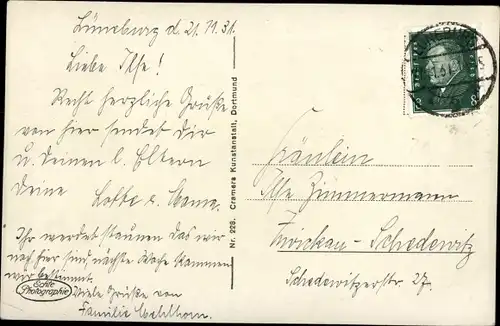 Lüneburg d. 21.
Liebe Ilse!
Recht herzliche Grüße
von hier sendet dir
u. deinen l. Eltern
deine Lotte u. Mama.
Ihr werdet staunen das wir
noch hier sind, nächste Woche kommen
wir bestimmt.
Viele Grüße von
Familie
Echte
Photographie
Nr. 229. Cramers Kunstanstalt, Dortmund
8 8
Fräulein
Ilse Zimmermann
Zwickau-Schedewitz
Schedewitzerstr. 27.